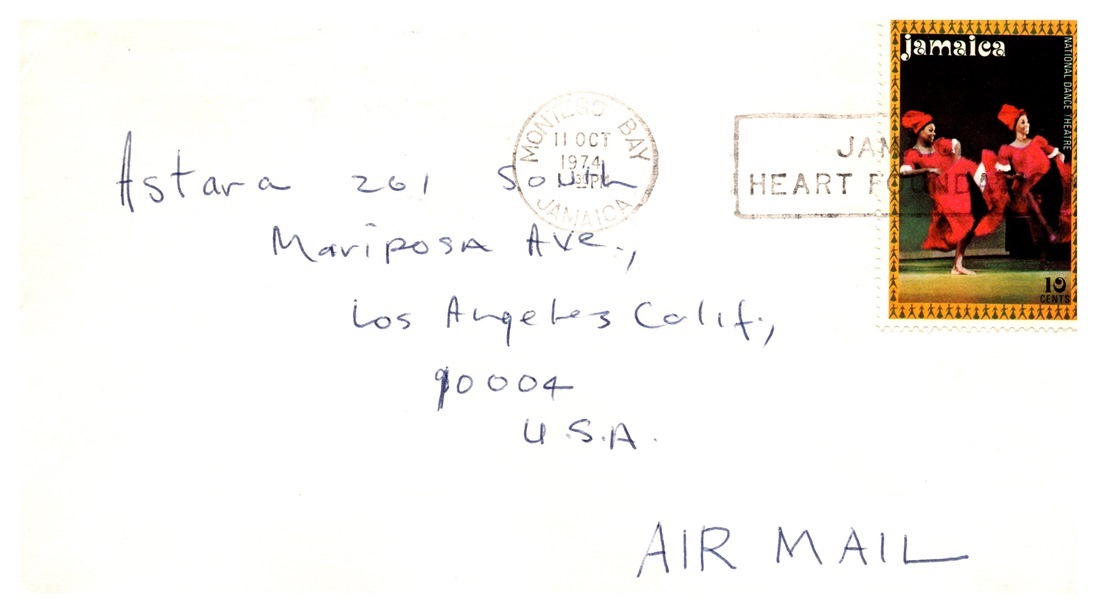 jamaica
NATIONAL DANCE THEATRE
10
CENTS
MONTEGO BAY
11 OCT
1974
JAMAICA
JAM
HEART FOUNDA
Astara 261 South
Mariposa Ave.,
Los Angeles Calif.,
90004
U.S.A.
AIR MAIL